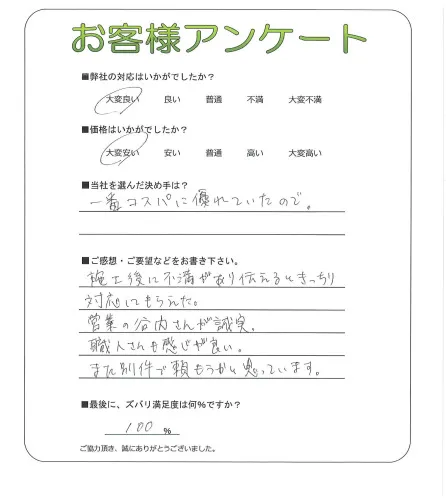 お客様アンケート
■弊社の対応はいかがでしたか？
大変良い 良い 普通 不満 大変不満
■価格はいかがでしたか？
大変安い 安い 普通 高い 大変高い
■当社を選んだ決め手は？
一番コスパに優れていたので。
■ご感想・ご要望などをお書き下さい。
施工後に不満があり伝えるときっちり
対応してもらえた。
営業の谷内さんが誠実。
職人さんも感じが良い。
また別件で頼もうかと思っています。
■最後に、ズバリ満足度は何％ですか？
100 %
ご協力頂き、誠にありがとうございました。